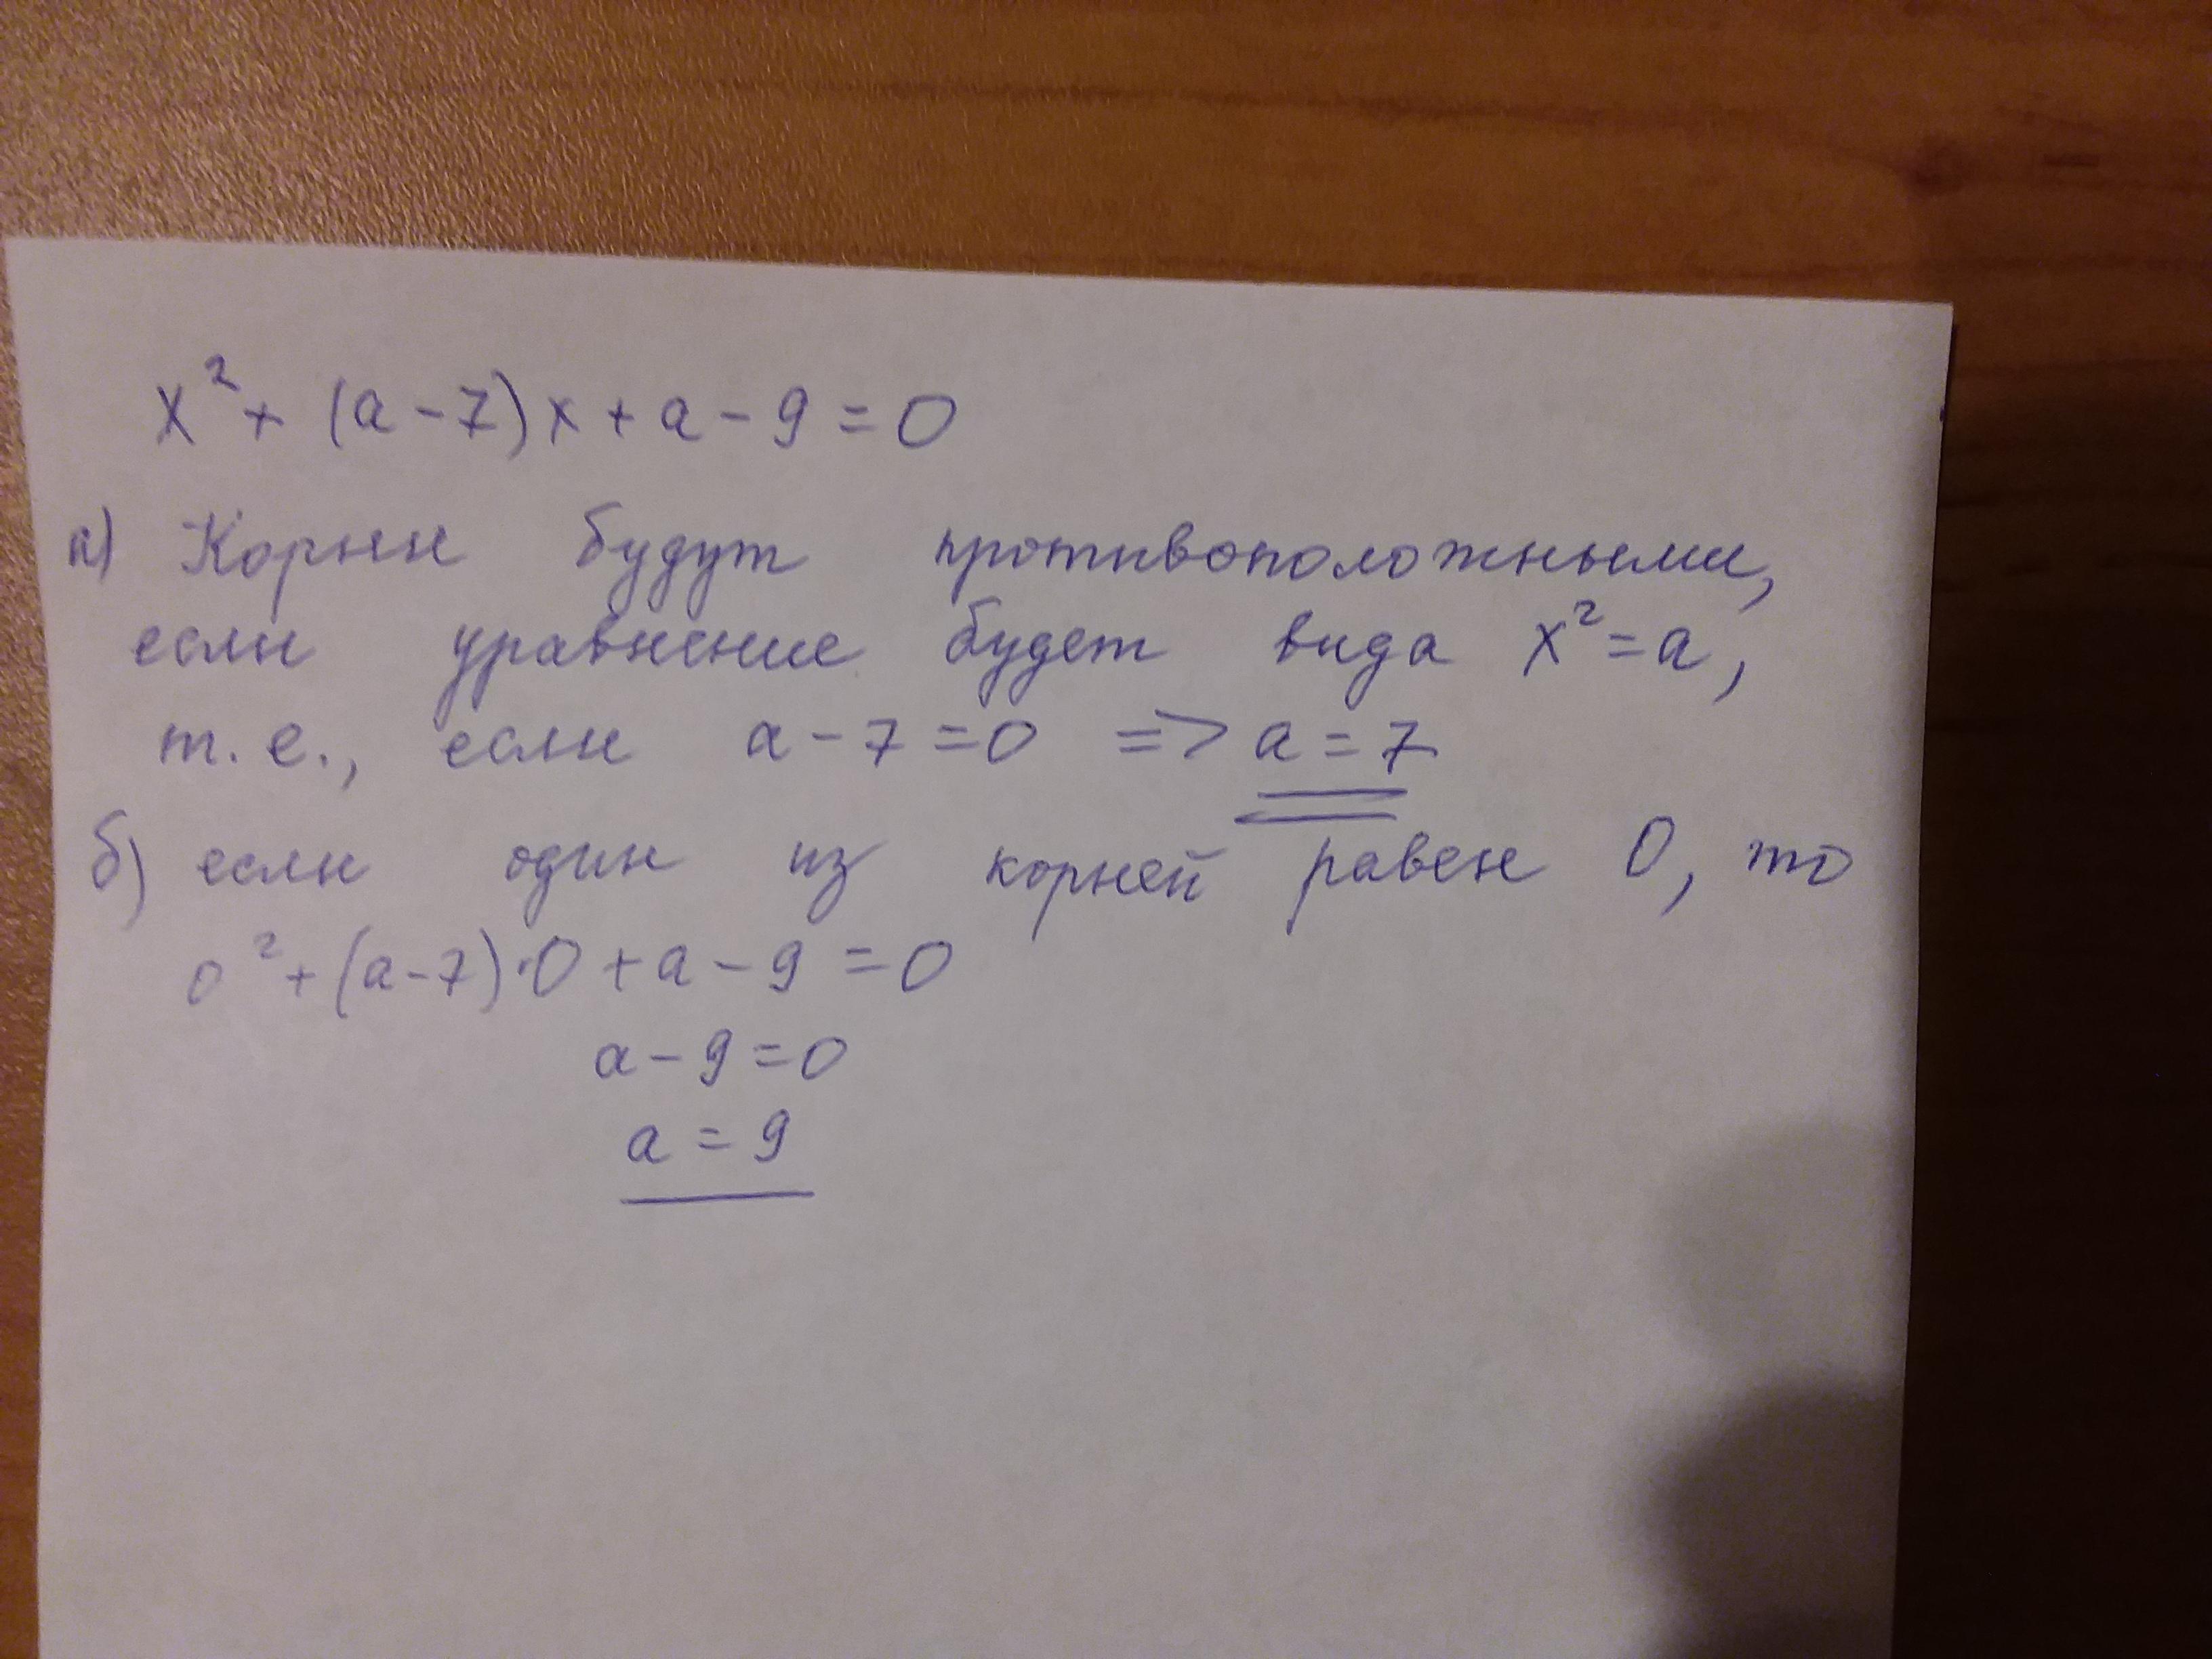 x² + (a - 7)x + a - 9 = 0
а) Корни будут противоположными,
если уравнение будет вида x² = a,
т.е., если a - 7 = 0 => a = 7
б) если один из корней равен 0, то
0² + (a - 7)·0 + a - 9 = 0
a - 9 = 0
a = 9